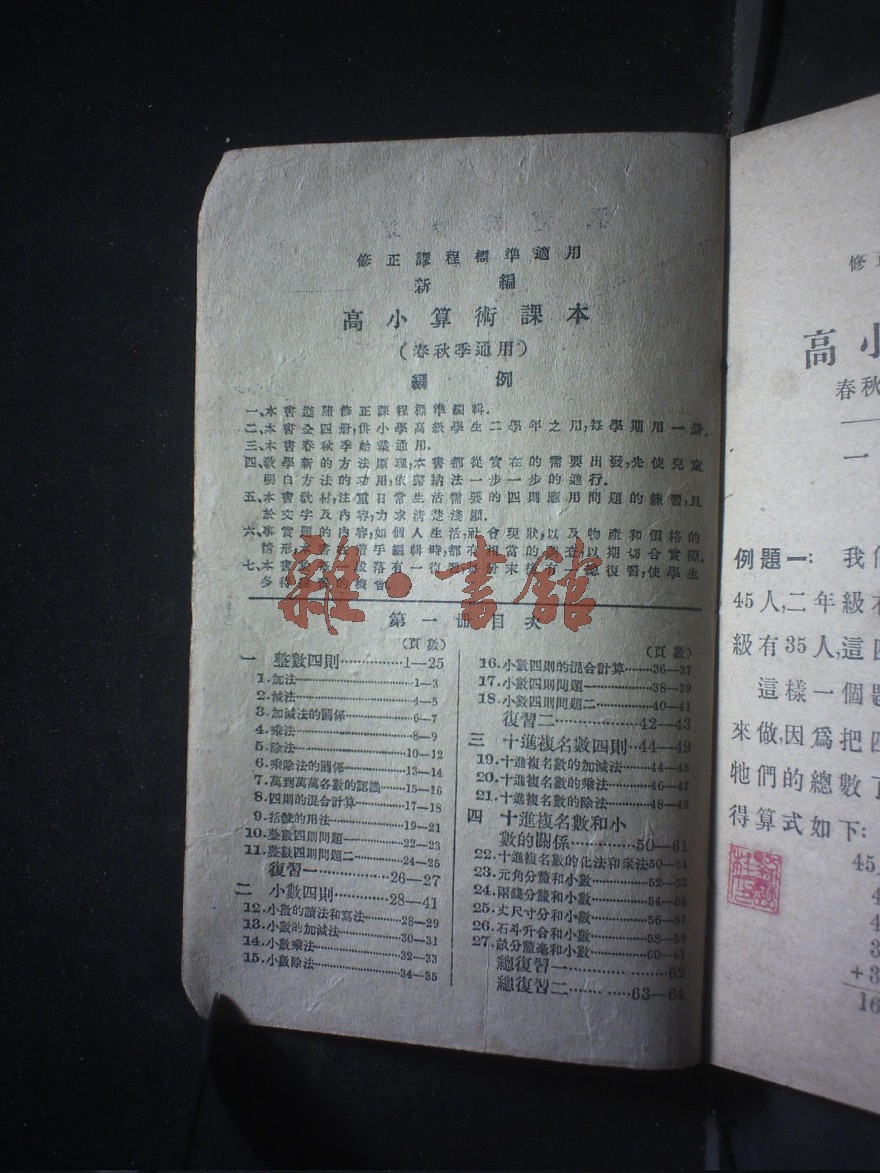 修正課程標準適用
新編
高小算術課本
(春秋季通用)
編例
一、本書遵照修正課程標準編輯.
二、本書全四册,供小學高級學生二學年之用,每學期用一册.
三、本書春秋季始業通用.
四、教學新的方法原理,本書都從實在的需要出發,先使兒童
明白方法的功用,依歸納法一步一步的進行.
五、本書教材,注重日常生活需要的四則應用問題的練習,且
於文字及內容,力求清楚淺顯.
六、事實題的內容,如個人生活,社會現狀,以及物產和價格的
情形,本書在着手編輯時,都有相當的調查,以期切合實際.
七、本書每一段落有一復習,使學生
多得的機會.
雜·書館
第一册目次
(頁數)
一 整數四則…………1—25
1.加法…………1—3
2.減法…………4—5
3.加減法的關係…………6—7
4.乘法…………8—9
5.除法…………10—12
6.乘除法的關係…………13—14
7.萬到萬萬各數的認識……15—16
8.四則的混合計算…………17—18
9.括號的用法…………19—21
10.整數四則問題一…………22—23
11.整數四則問題二…………24—25
復習一…………26—27
二 小數四則…………28—41
12.小數的讀法和寫法…………28—29
13.小數的加減法…………30—31
14.小數乘法…………32—33
15.小數除法…………34—35
(頁數)
16.小數四則的混合計算………36—37
17.小數四則問題一…………38—39
18.小數四則問題二…………40—41
復習二…………42—43
三 十進複名數四則…44—49
19.十進複名數的加減法………44—45
20.十進複名數的乘法…………46—47
21.十進複名數的除法…………48—49
四 十進複名數和小
數的關係…………50—61
22.十進複名數的化法和乘法50—51
23.元角分釐和小數…………52—53
24.兩錢分釐和小數…………54—55
25.丈尺寸分和小數…………56—57
26.石斗升合和小數…………58—59
27.畝分釐毫和小數…………60—61
總復習一…………62
總復習二…………63—64
修正
高小
春秋
一
例題一: 我們
45人,二年級
級有35人,這四
這樣一個題
來做,因爲把四
牠們的總數了
得算式如下:
45人
4
4
3
+3
16